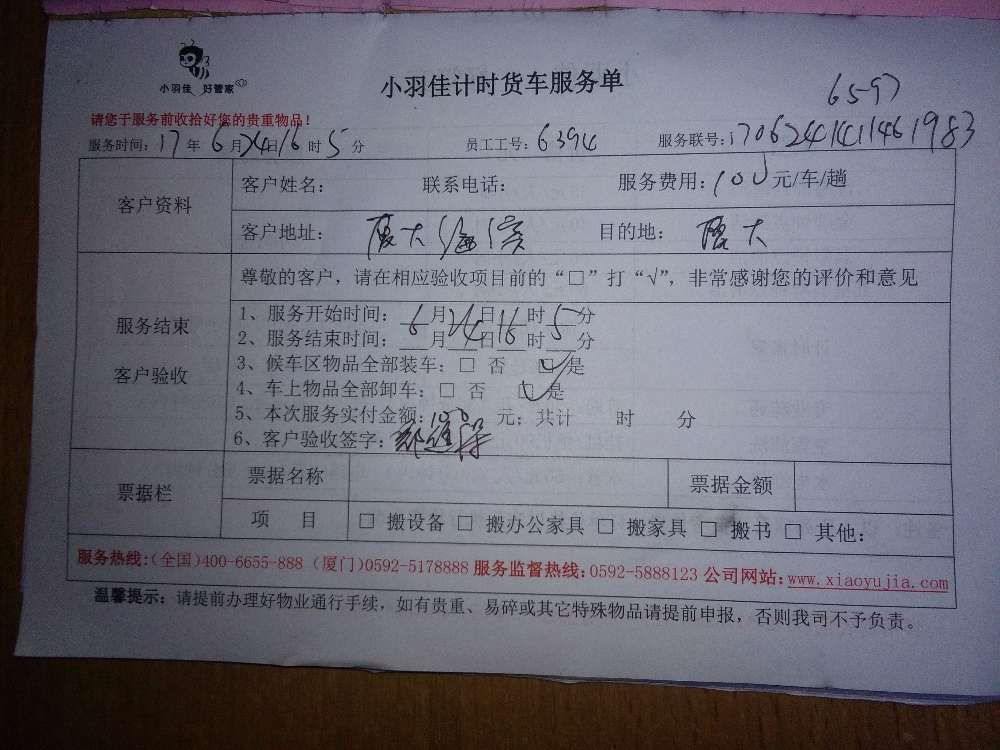 小羽佳 好管家
小羽佳计时货车服务单
6597
请您于服务前收拾好您的贵重物品！
服务时间：17年6月24日16时5分 员工工号：6394 服务联号：
客户资料
客户姓名： 联系电话： 服务费用：100元/车/趟
客户地址：厦大海滨 目的地：厦大
服务结束
客户验收
尊敬的客户，请在相应验收项目前的“□”打“√”，非常感谢您的评价和意见
1、服务开始时间：6月24日16时5分
2、服务结束时间：__月__日__时__分
3、候车区物品全部装车：□ 否 ☑ 是
4、车上物品全部卸车：□ 否 ☑ 是
5、本次服务实付金额：100元；共计 时 分
6、客户验收签字：
票据栏
票据名称 票据金额
项 目 □ 搬设备 □ 搬办公家具 □ 搬家具 □ 搬书 □ 其他：
服务热线:(全国)400-6655-888（厦门)0592-5178888 服务监督热线:0592-5888123 公司网站:www.xiaoyujia.com
温馨提示：请提前办理好物业通行手续，如有贵重、易碎或其它特殊物品请提前申报，否则我司不予负责。